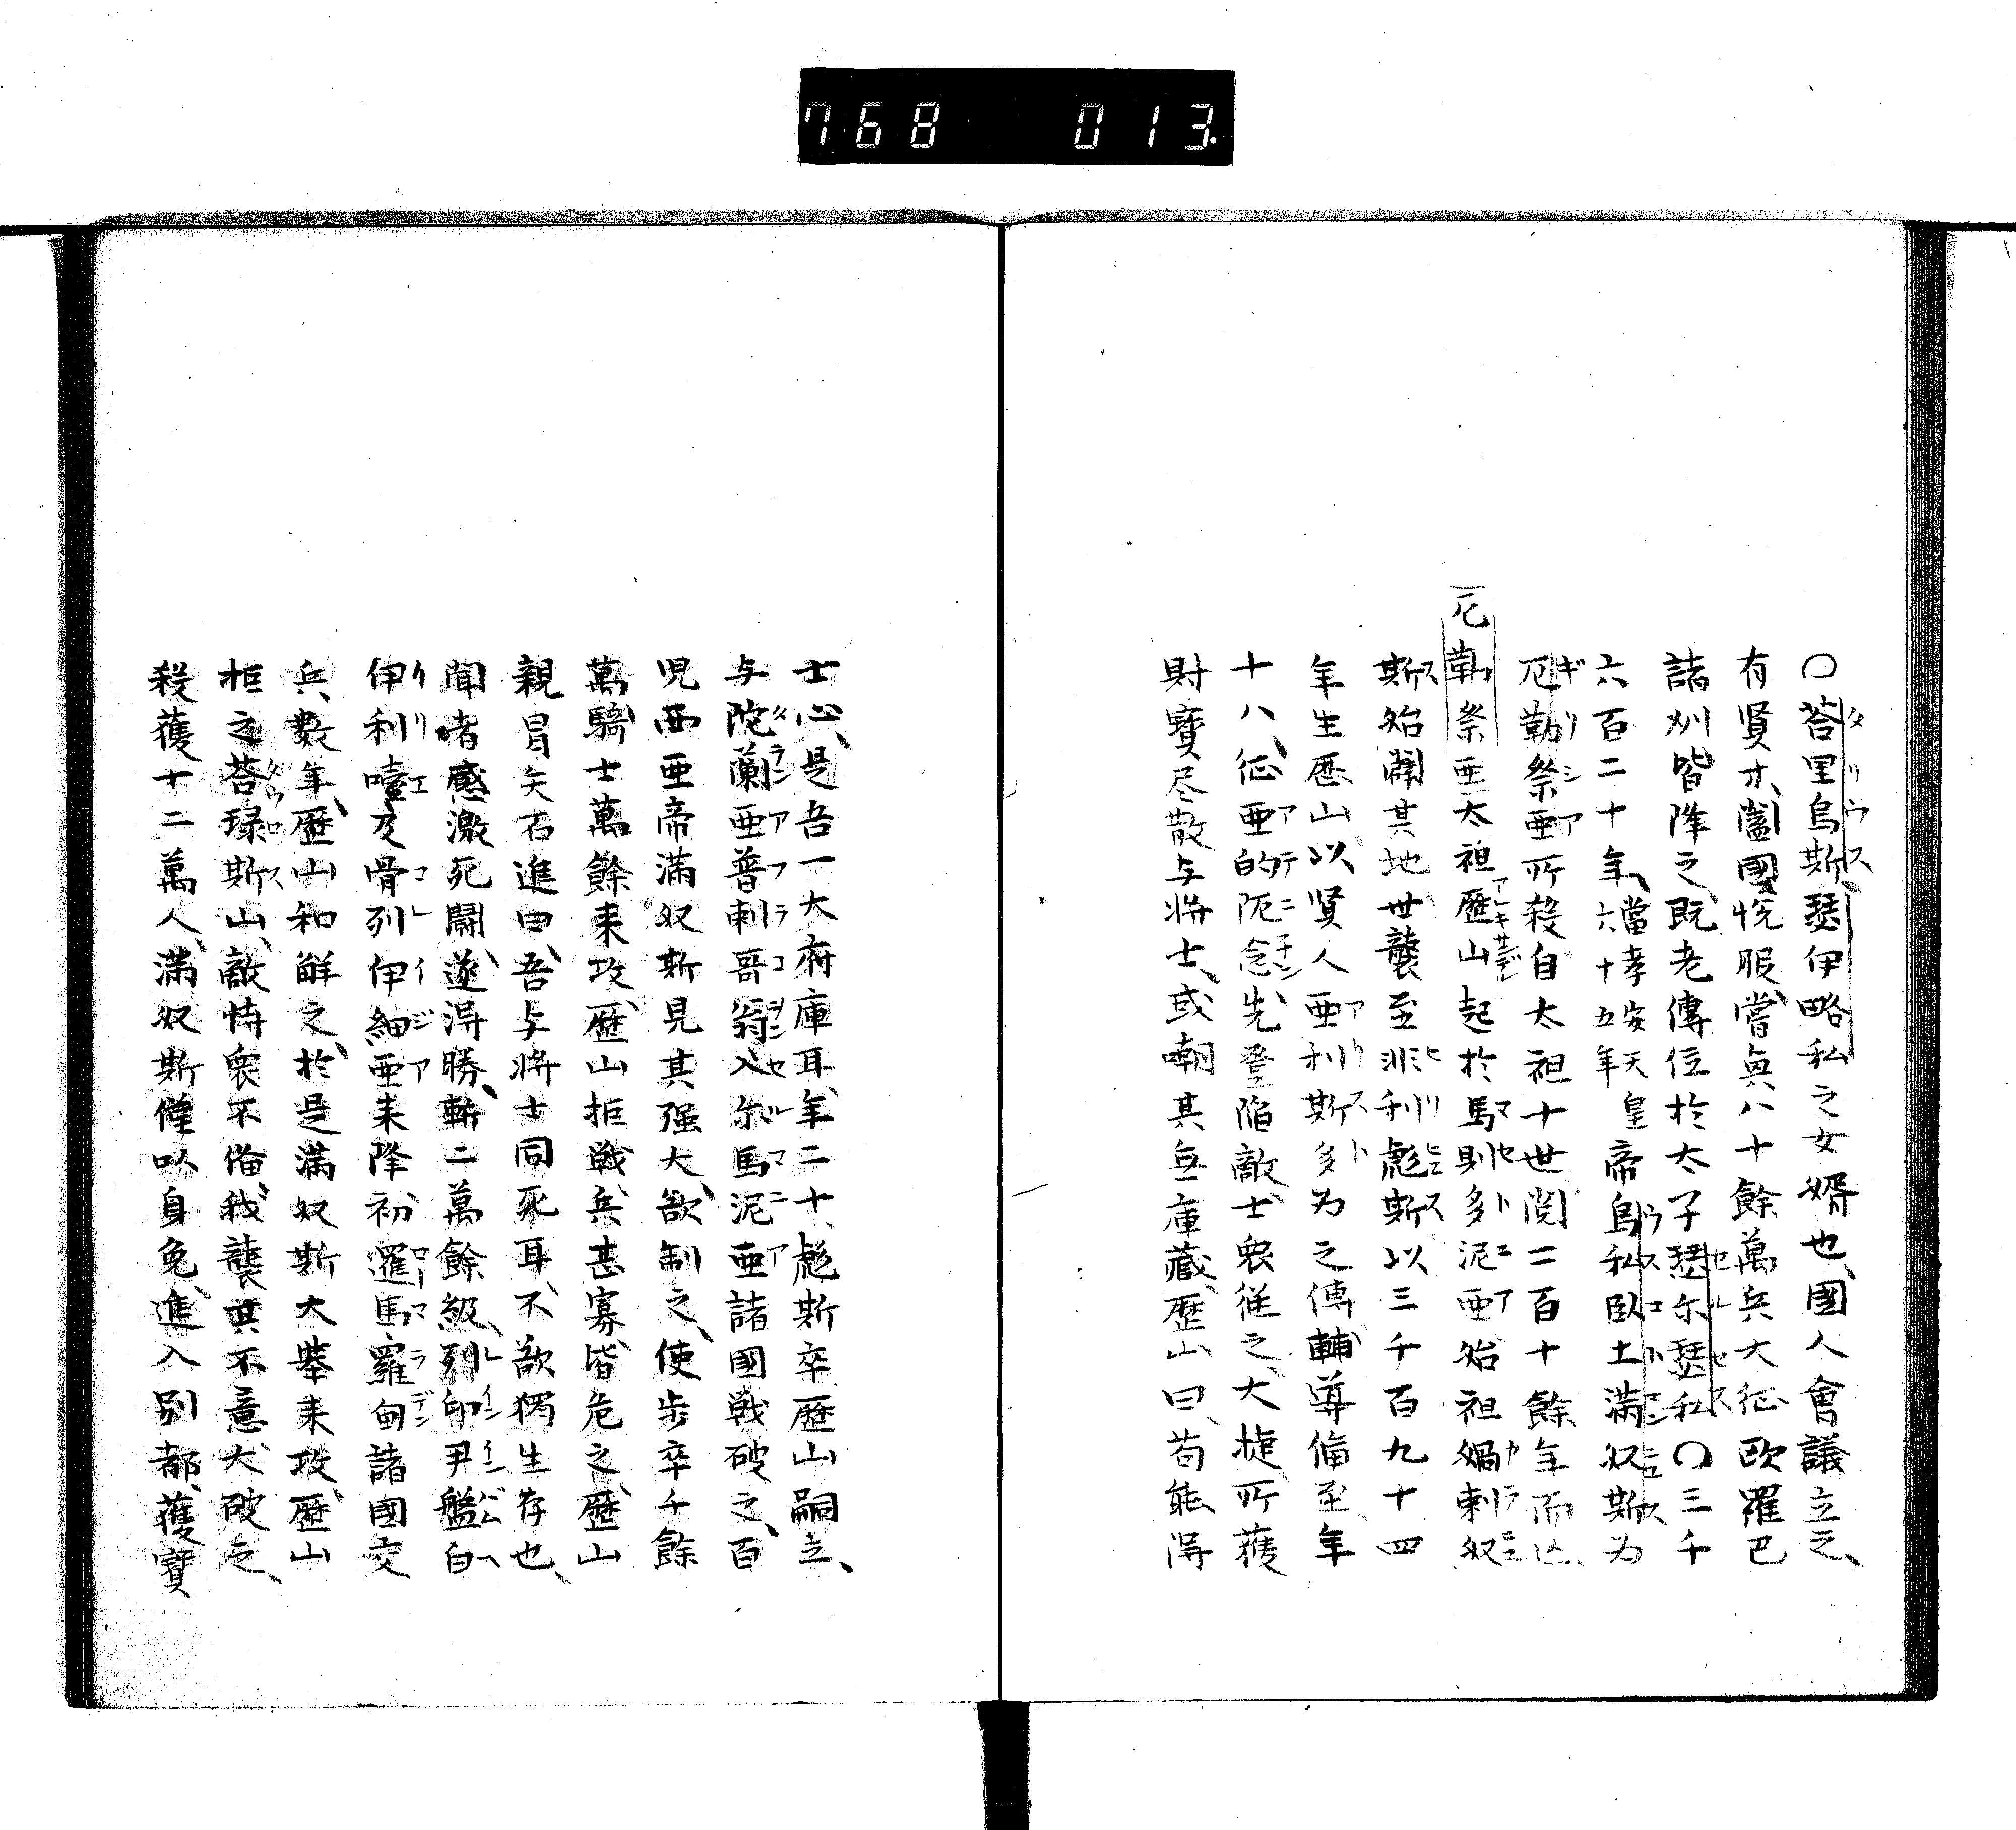 768 013
〇荅里烏斯、瑟伊略私之女婿也、國人會議立之、
有賢才、闔國悅服、嘗興八十餘萬兵大征歐羅巴
諸刕皆降之、既老傳位於太子瑟尓瑟私〇三千
六百二十年、當孝安天皇六十五年帝烏私臥土満奴斯为
厄勒祭亜所殺自太祖十世閲二百十餘年而
厄勒祭亜太祖歷山起於馬則多泥亜始祖媧剌奴
斯始闢其地世襲至非利彪斯以三千百九十四
年生歷山以賢人亜利斯多为之傅輔導備至年
十八、征亜的阨念先登陥敵、士衆從之、大捷所獲
財寶尽散与將士、或嘲其無庫藏、歷山曰、苟能得
士心、是吾一大府庫耳、年二十、彪斯卒歷山嗣立、
与陀蘭亜普剌哥翁入尓馬泥亜諸國戦破之、百
児西亜帝満奴斯見其强大、欲制之、使歩卒千餘
萬騎士萬餘来攻、歷山拒戦、兵甚寡、皆危之、歷山
親冒矢石進曰、吾与將士同死耳、不欲獨生存也、
聞者感激死鬪、遂得勝、斬二萬餘級、列印尹盤白
伊利噎及骨列伊細亜来降、初邏馬羅甸諸國交
兵、數年、歷山和解之、於是満奴斯大挙来攻、歷山
拒之荅琭斯山、敵恃衆不備、我襲其不意、大破之、
殺獲十二萬人、満奴斯僅以身免、進入別都、獲寶